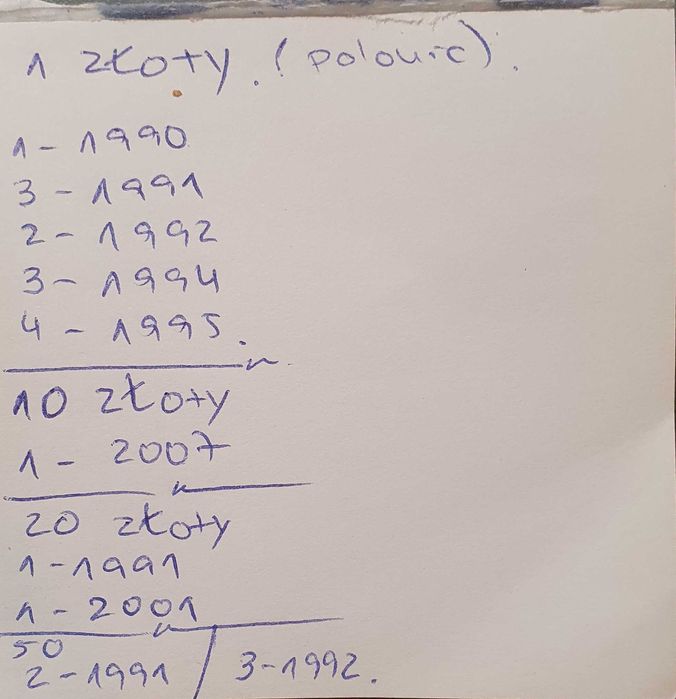 1 złoty. (polouic).
1 - 1990
3 - 1991
2 - 1992
3 - 1994
4 - 1995.
10 złoty
1 - 2007
20 złoty
1 - 1991
1 - 2001
50
2 - 1991 / 3 - 1992.